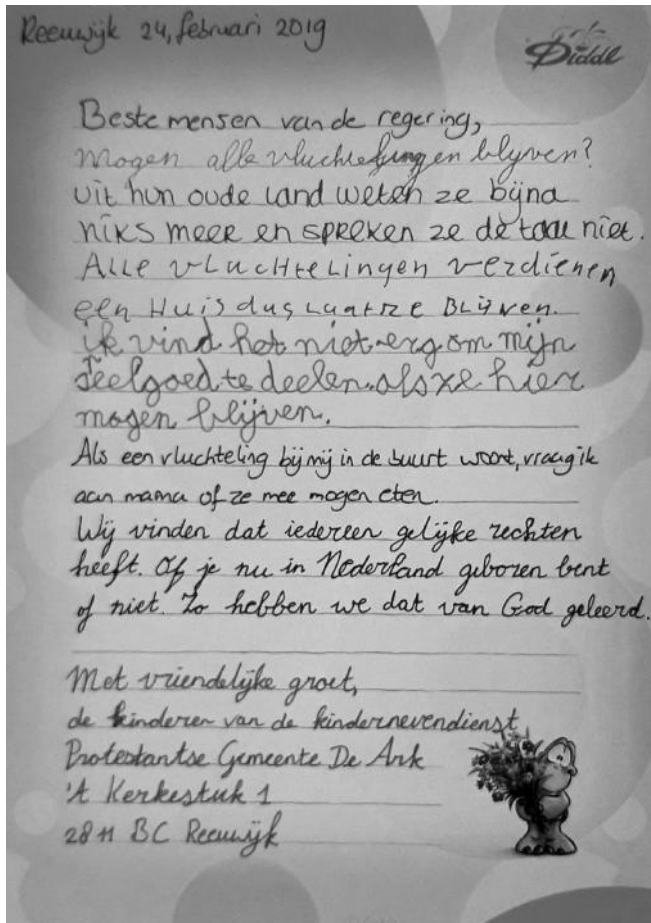 Reeuwijk 24, februari 2019
Diddl
Beste mensen van de regering,
Mogen alle vluchtelingen blyven?
uit hun oude land weten ze bijna
niks meer en spreken ze de taal niet.
Alle vluchtelingen verdienen
een Huis dus laat ze Blijven.
ik vind het niet erg om mijn
speelgoed te deelen. als ze hier
mogen blijven.
Als een vluchteling bij mij in de buurt woont, vraag ik
aan mama of ze mee mogen eten.
Wij vinden dat iedereen gelijke rechten
heeft. Of je nu in Nederland geboren bent
of niet. Zo hebben we dat van God geleerd.
Met vriendelijke groet,
de kinderen van de kindernevendienst
Protestantse Gemeente De Ark
'A Kerkestuk 1
2811 BC Reeuwijk